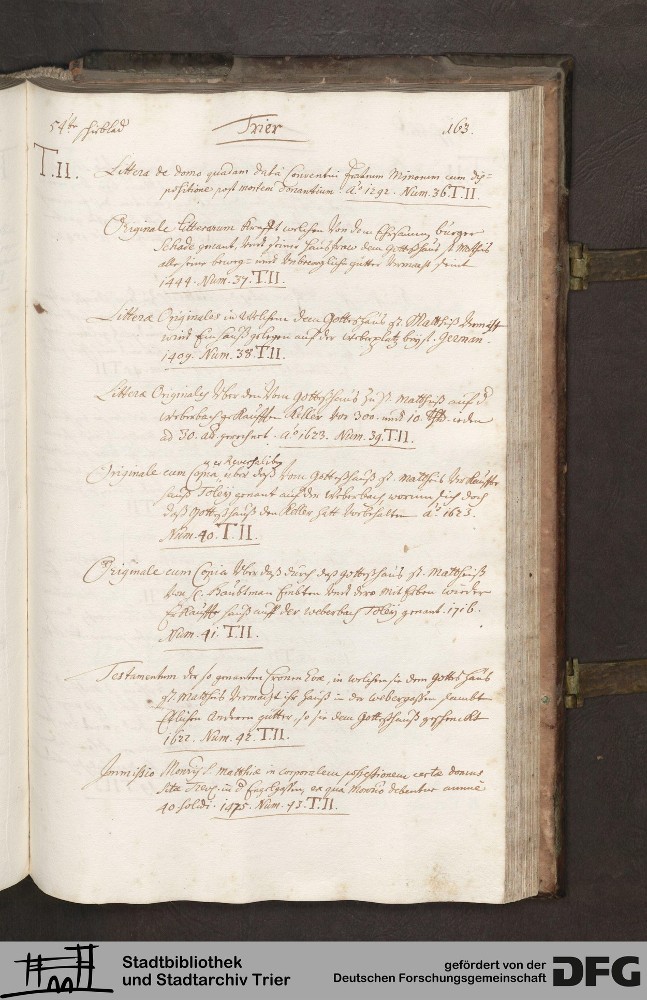 54te schublad Trier 163.
T.II. Littera de domo quadam data Conventui fratrum Minorum cum dis=
positione post mortem donantium. Aō 1292. Num. 36. T.II.
Originale Litterarum Krafft welcher von dem Ehrsamen bürger
Schade genant, undt seiner haußfraw dem Gotteßhauß St. Matheis
alle seine beweg= undt unbeweglich gütter vermacht seint
1444. Num. 37. T.II.
Litteræ Originales in welchem dem Gotteshaus St. Mattheiß vermacht
wird Ein hauß gelegen auff der weberplatz bey st. German.
1409. Num. 38. T.II.
Litteræ Originales über den vom Gotteßhaus zu St. Mattheiß auff d.
weberbach gekaufften Keller vor 300. und 10. jeden
ad 30. alb gerechnet. Aō 1623. Num. 39. T.II.
et Reversalibus
Originale cum Copia über daß vom Gotteßhauß St. Mattheis verkauffte
hauß Toley genant auff der weberbach, worum sich doch
daß Gotteßhauß den Keller hatt vorbehalten Aō 1623.
Num. 40. T.II.
Originale cum Copia über daß durch daß gotteßhaus St. Mattheiß
von undt dero mit Erben wieder
Erkauffte hauß auff der weberbach Toley genant. 1716.
Num. 41. T.II.
Testamentum der so genanten Eva, in welchem sie dem gottes haus
St. Mattheis vermacht ihr hauß in der webergassen sambt
Etlichen Anderen gütter, so sie dem Gotteßhauß geschenckt
1622. Num. 42. T.II.
Immissio Monrii S. Matthiæ in corporalem possessionem certæ domus
sitæ Trev. in d. Engelgassen, ex qua Monrio debentur annuè
40 solidi. 1475. Num. 43. T.II.
Stadtbibliothek
und Stadtarchiv Trier
gefördert von der
Deutschen Forschungsgemeinschaft
DFG